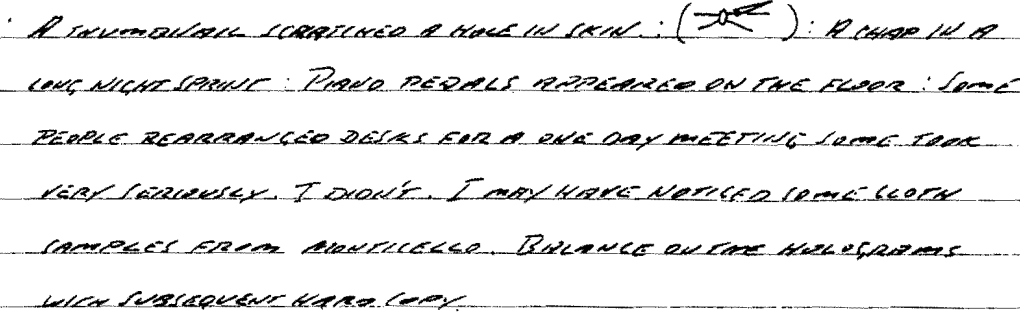 : A THUMBNAIL SCRATCHED A HOLE IN SKIN. : ( ) : A CHAP IN A
LONG NIGHT SPRINT : PIANO PEDALS APPEARED ON THE FLOOR : SOME
PEOPLE REARRANGED DESKS FOR A ONE DAY MEETING SOME TOOK
VERY SERIOUSLY. I DIDN'T. I MAY HAVE NOTICED SOME CLOTH
SAMPLES FROM MONTICELLO. BALANCE ON THE HOLOGRAMS
WITH SUBSEQUENT HARD COPY